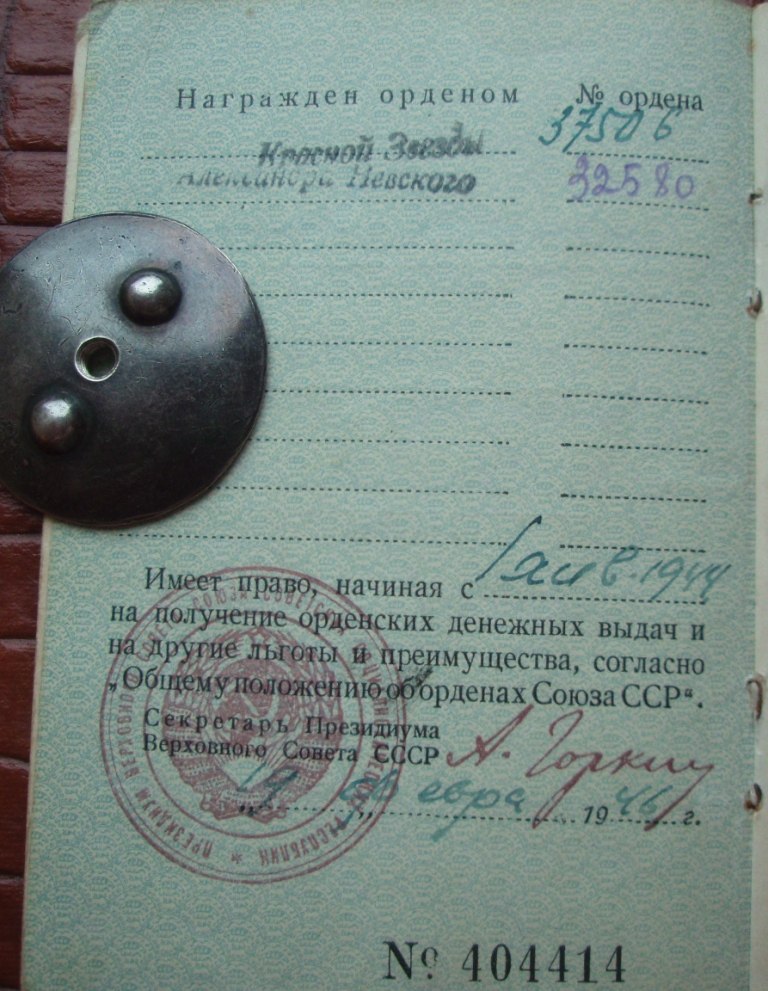 Награжден орденом № ордена
Красной Звезды 37506
Александра Невского 32580
Имеет право, начиная с 1 янв. 1944
на получение орденских денежных выдач и
на другие льготы и преимущества, согласно
„Общему положению об орденах Союза ССР“.
Секретарь Президиума
Верховного Совета СССР А. Горкин
„19„ февра 1946 г.
№ 404414